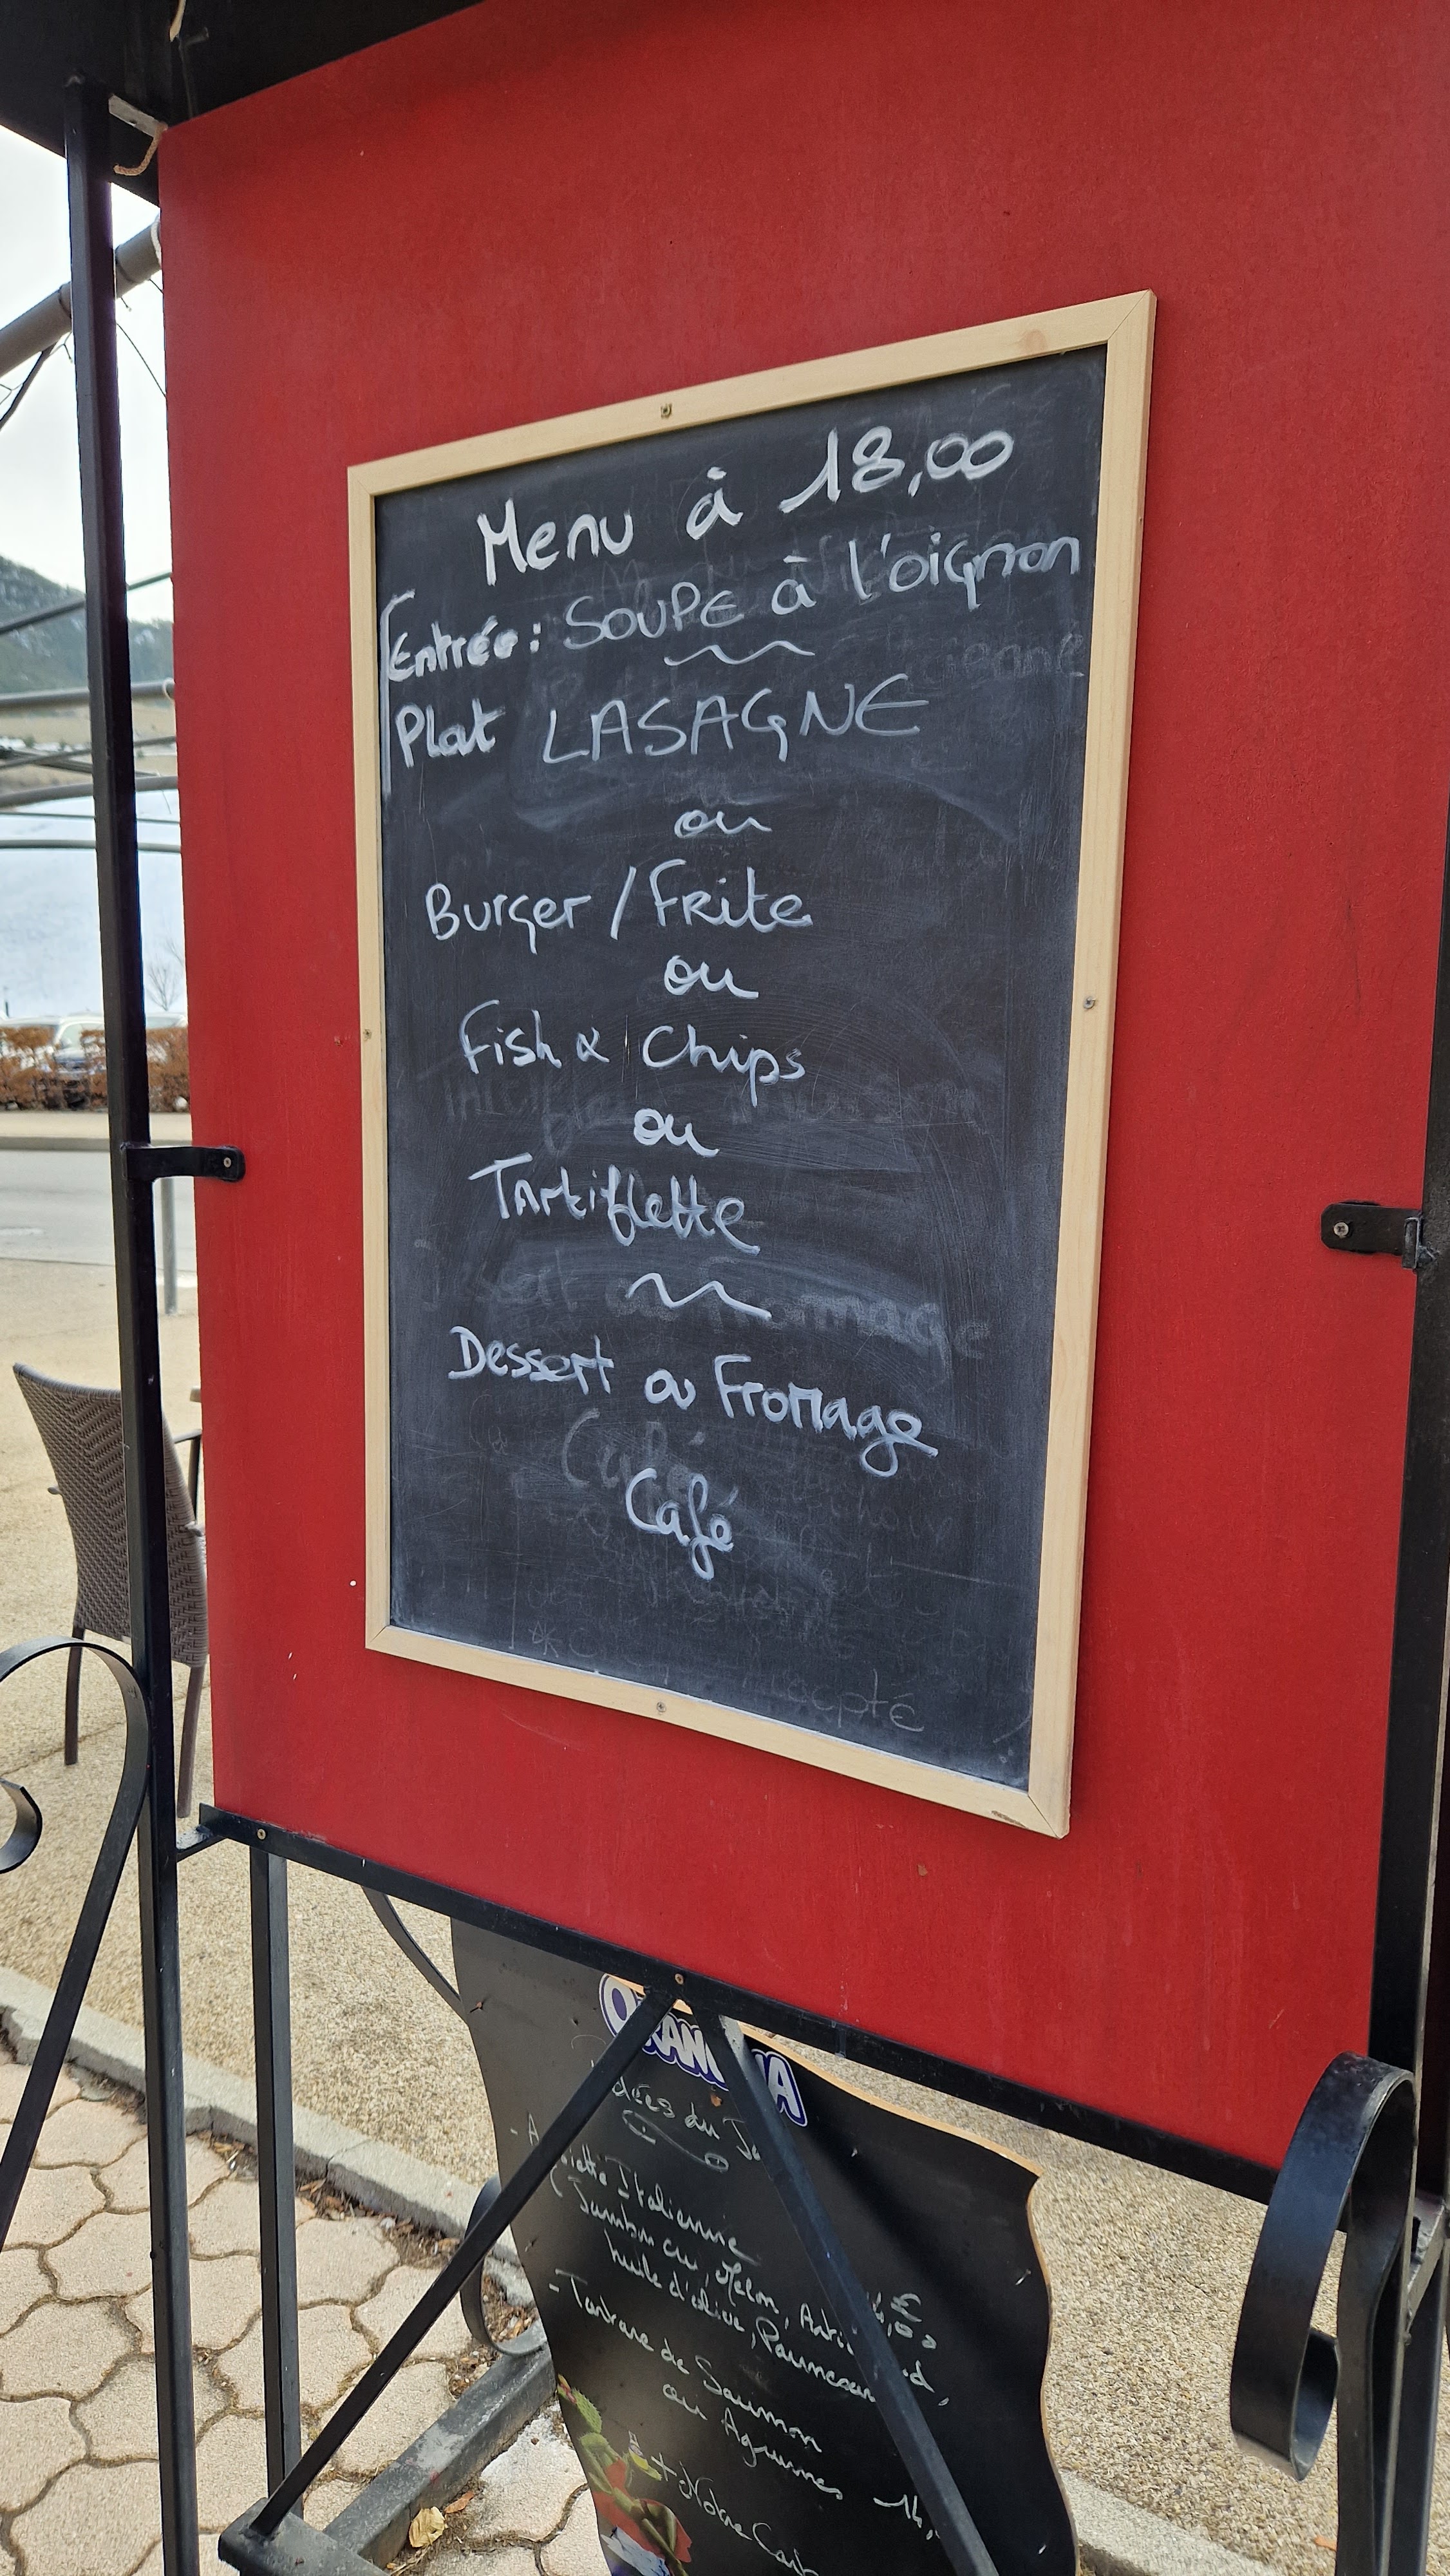 Menu à 18,00
Entrée: SOUPE à l'oignon
Plat LASAGNE
ou
Burger / Frite
ou
Fish & Chips
ou
Tartiflette
Dessert ou Fromage
Café
ORANGINA
du
Italienne
Melon,
huile d'olive,
- Tartare de Saumon
ou Agrumes 14,
+ Notre